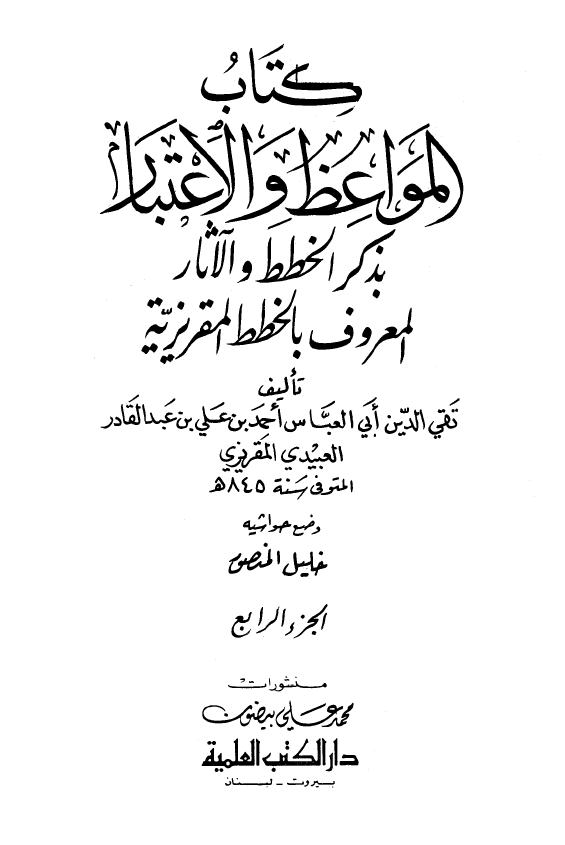 كتاب
المواعظ والاعتبار
بذكر الخطط والآثار
المعروف بالخطط المقريزية
تأليف
تقي الدين أبي العباس أحمد بن علي بن عبد القادر
العبيدي المقريزي
المتوفى سنة ٨٤٥ هـ
وضع حواشيه
خليل المنصور
الجزء الرابع
منشورات
محمد علي بيضون
دار الكتب العلمية
بيروت - لبنان